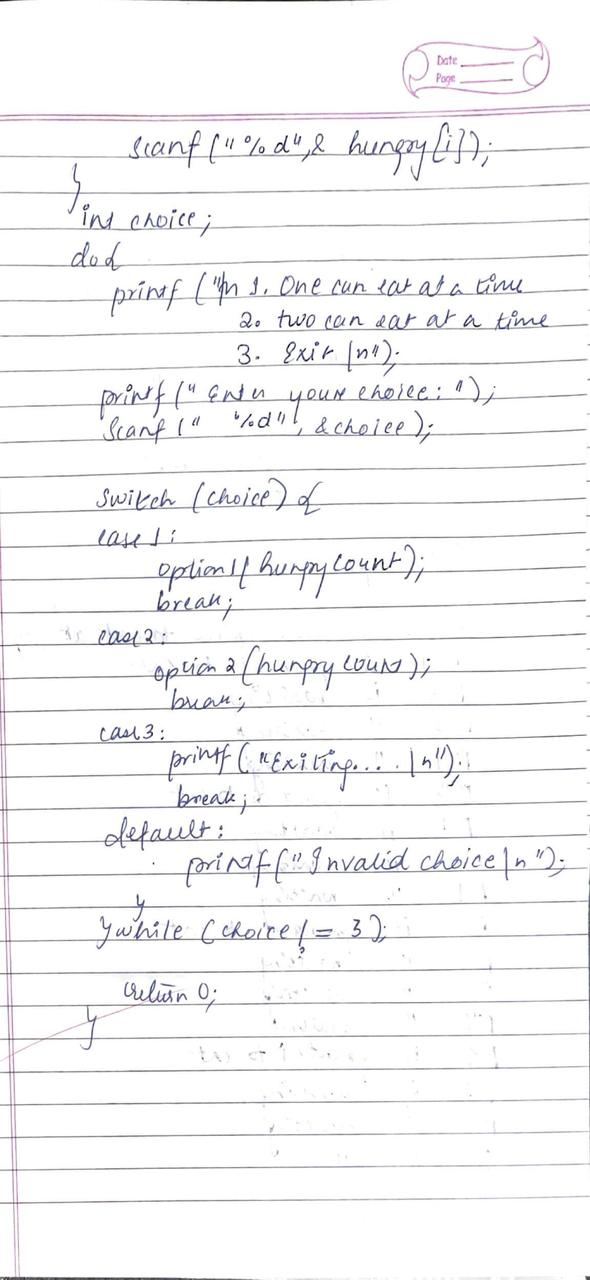 Date
Page
scanf ("%d", & hungry[i]);
}
int choice;
do {
printf ("\n 1. One can eat at a time
2. two can eat at a time
3. Exit \n");
printf (" Enter your choice: ");
Scanf (" %d", &choice);
switch (choice) {
case 1:
option1( hungrycount);
break;
case 2:
option 2 (hungrycount);
break;
case 3:
printf ("Exiting... \n");
break;
default:
printf (" Invalid choice \n ");
}
} while (choice != 3);
return 0;
}